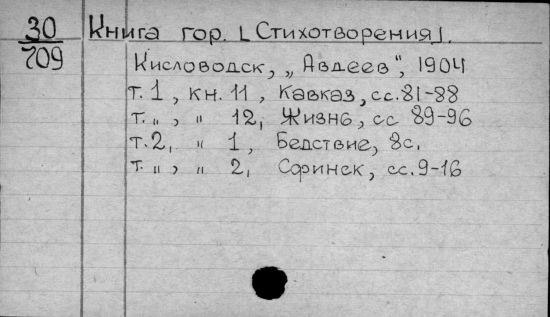 30
709
Книга гор. [Стихотворения].
Кисловодск, „Авдеев", 1904
т. 1, кн. 11, Кавказ, сс. 81-88
т. „, „ 12, Жизнь, сс 89-96
т. 2, „ 1, Бедствие, 8с.
т. „, „ 2, Соринск, сс. 9-16